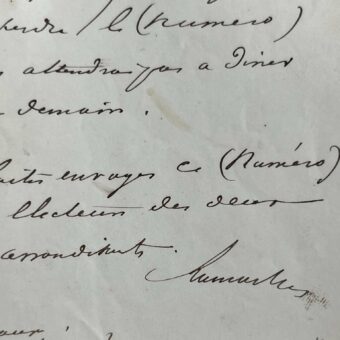 perdre / le (Numéro)
attendrai pas a Diner
demain.
faites envoyer ce (Numéro)
Electeurs des deux
arrondisents.